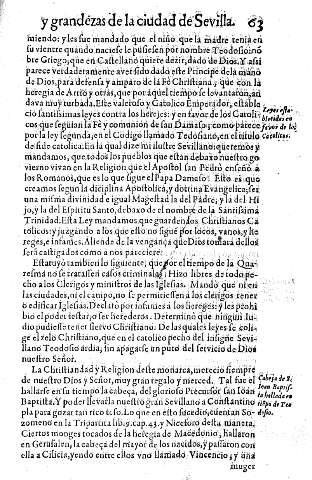 y grandezas de la ciudad de Sevilla. 63
miendo: y les fue mandado que el niño que la madre tenia en
su vientre quando naciese le pusiesen por nombre Teodosio nõ
bre Griego, que en Castellano quiere dezir, dado de Dios. Y asi
parece verdaderamente aver sido dado este Principe de la mano
de Dios, para defensa y amparo de la Fé Christiana, que con la
heregia de Arrio y otras, que por aquel tiempo se levantaron, an
dava muy turbada. Este valeroso y Catolico Emperador, establ
cio santissimas leyes contra los herejes: y en favor de los Catoli
cos que seguian la Fé y comunion de san Damaso, como parece
por la ley segunda, en el Codigo llamado Teodosano, en el titulo
de fide catolica. En la qual dize mi ilustre Sevillano: queremos y
mandamos, que todos los pueblos que estan debaxo nuestro go
vierno vivan en la Religion que el Apostol san Pedro enseñó a
los Romanos, que es la que sigue el Papa Damaso. Esto es que
creamos segun la diciplina Apostolica, y dotrina Evangelica; ser
una misma divinidad e igual Magestad la del Padre, y la del Hi
jo, y la del Espiritu Santo, debaxo de el nombre de la Santissima
Trinidad. Esta Ley mandamos que guarden los Christianos Ca
tolicos: y juzgando a los que esto no sigué por locos, vanos, y he
reges, e infames. Aliende de la vengança que Dios tomará dellos
será castigados como a nos pareciere.
Estatuyó tambien lo siguiente; que por el tiempo de la Qua
resma no se tratassen casos criminales. Hizo libres de todo pe
cho a los Clerigos y ministros de las Iglesias. Mandó que ni en
las ciudades, ni el campo, no se permitiesen a los clerigos tener
o edificar Iglesias. Declaró por infames a los hereges: y les prohi
bio el poder testar, o ser herederos. Determinó que ningun Iu
dio pudiesse tener siervo Christiano. De las quales leyes se coli
ge el zelo Christiano, que en el catolico pecho del insigne Sevi
llano Teodosio ardia, sin apagarse un puto del servicio de Dios
nuestro Señor.
La Christiandad y Religion deste monarca, meteció siempre
de nuestro Dios y Señor, muy gran regalo y merced. Tal fue el
hallarse en su tiempo la cabeça, del glorioso Precursor san Ioan
Baptista. Y poder llevarla nuestro gran Sevillano a Constantino
pla para gozar tan rico teso. Lo que en esto sucedio, cuentan So
zomeno en la Tripartita lib. 9. cap. 43. y Niceforo desta manera,
Ciertos monges tocados de la heregia de Macedonio, hallaron
en Gerusalen, la cabeça del mayor de los nacidos, y passaron con
ella a Cilicia, yendo entre ellos uno llamado Vincencio, y una
muger
Leyes esta
blecidas en
favor de los
Catolicos.
Cabeça de S.
Ioan Baptis
ta hallada en
tiẽpo de Teo
dosio.